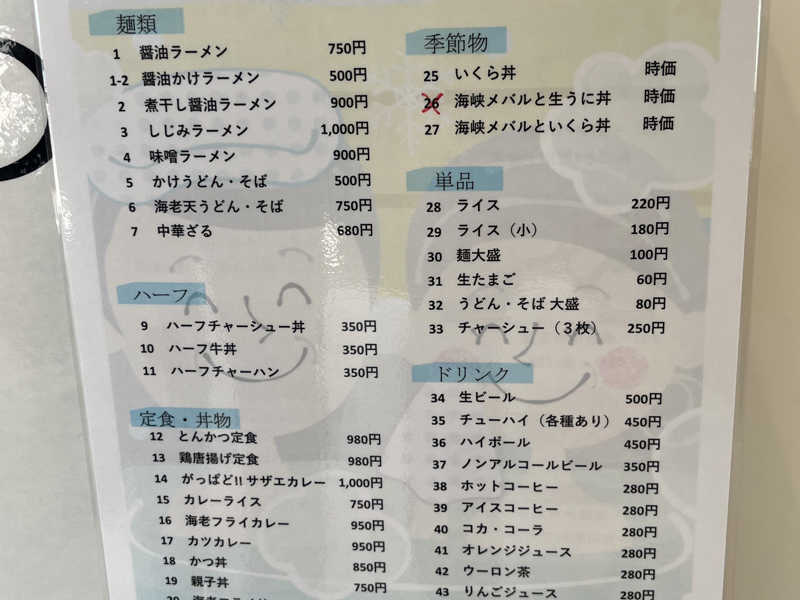 麺類
1 醤油ラーメン 750円
1-2 醤油かけラーメン 500円
2 煮干し醤油ラーメン 900円
3 しじみラーメン 1,000円
4 味噌ラーメン 900円
5 かけうどん・そば 500円
6 海老天うどん・そば 750円
7 中華ざる 680円
ハーフ
9 ハーフチャーシュー丼 350円
10 ハーフ牛丼 350円
11 ハーフチャーハン 350円
定食・丼物
12 とんかつ定食 980円
13 鶏唐揚げ定食 980円
14 がっぱど!! サザエカレー 1,000円
15 カレーライス 750円
16 海老フライカレー 950円
17 カツカレー 950円
18 かつ丼 850円
19 親子丼 750円
季節物
25 いくら丼 時価
26 海峡メバルと生うに丼 時価
27 海峡メバルといくら丼 時価
単品
28 ライス 220円
29 ライス（小） 180円
30 麺大盛 100円
31 生たまご 60円
32 うどん・そば 大盛 80円
33 チャーシュー（３枚） 250円
ドリンク
34 生ビール 500円
35 チューハイ（各種あり） 450円
36 ハイボール 450円
37 ノンアルコールビール 350円
38 ホットコーヒー 280円
39 アイスコーヒー 280円
40 コカ・コーラ 280円
41 オレンジジュース 280円
42 ウーロン茶 280円
43 りんごジュース 280円